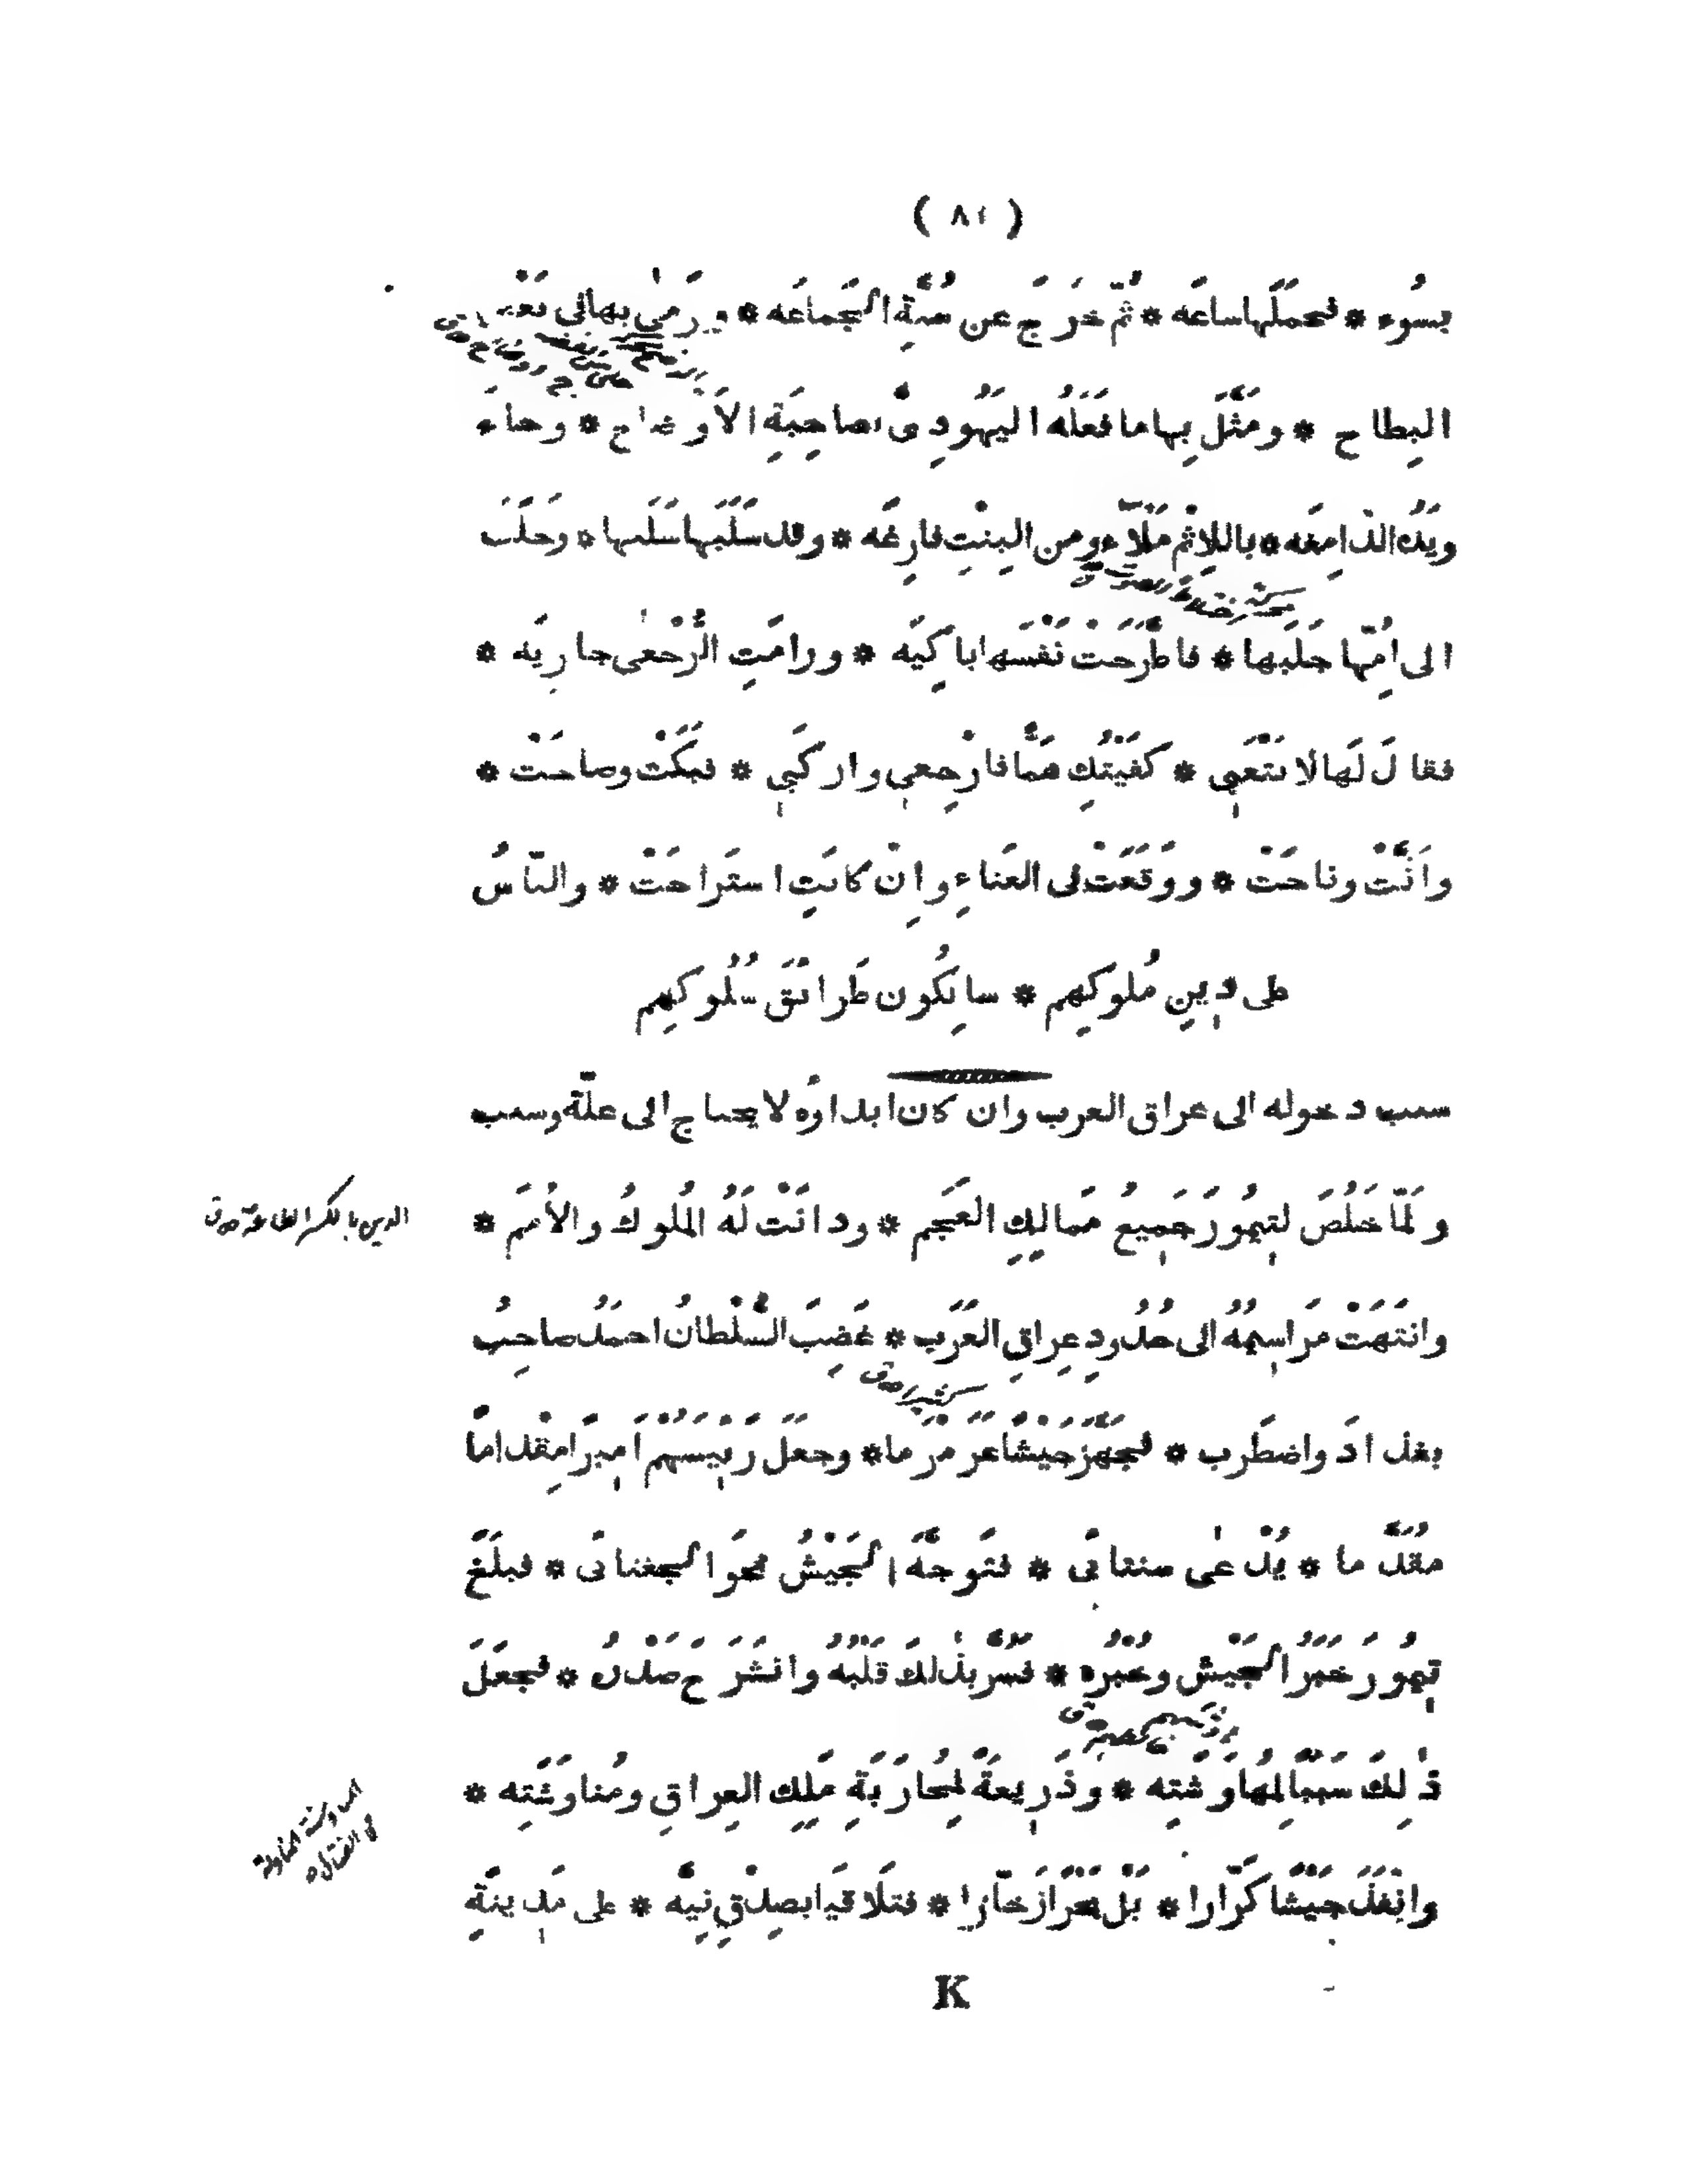 ( ٨١ )
بسُوء * فحمَلَها ساعَه * ثُمّ خرَجَ عن سُنَّةِ الجَماعَه * ورَمىٰ بها في بَعْضِ
البِطاح * ومَثَّلَ بِها ما فَعَلَهُ اليَهُودِيُّ بصاحِبَةِ الاَوْضاح * وجاءَ
ويَدُه الدّامِغَه * بالاِثْمِ مَلْآءُ ومن البِنْتِ فارِغَه * وقد سَلَبَها سَلَبها * وجَلَبَ
الى اُمِّها جَلَبَها * فاطَّرَحَتْ نَفْسَها باكِيَه * ورامَتِ الرُّجْعىٰ جارِيَه *
فقالَ لَها لا تَتْعَبِي * كَفَيْتُكِ هَمًّا فارْجِعي واركَبي * فبَكَتْ وصاحَت *
واَنَّتْ وناحَتْ * ووَقَعَتْ في العَناءِ واِنْ كانَتِ استَراحَتْ * والنّاسُ
على دِينِ مُلوكِهم * سايِكُون طَرائقَ سُلُوكِهِم
سبب دخوله الى عراق العرب وان كان ابذاؤه لا يحتاج الى علّة وسبب
ولَمّا خَلُصَ لتيمُورَ جَميعُ مَمالِكِ العَجَمِ * ودانَتْ لَهُ المُلوكُ والاُمَم *
الدين بالكسر الطاعة ص ق
وانتَهَتْ مَراسِيمُهُ الى حُدُودِ عِراقِ العَرَب * غَضِبَ السُّلْطانُ احمَدُ صاحِبُ
بغدادَ واضطَرب * فجَهَّزَ جَيْشًا عَرَمْرَما * وجعَلَ رَئيسَهُمْ اميرًا مِقْدامًا
مقدَّما * يُدْعىٰ سنتائى * فتَوجَّهَ الجَيْشُ نحوَ الجغتائى * فبلَغَ
تيمُورَ خبَرُ الجَيْشِ وخُبْرُه * فسُرَّ بذٰلكَ قلبُهُ وانشَرَحَ صَدْرُه * فجعَلَ
ذٰلِكَ سَبَبًا لِمُهاوَشَتِه * وذَرِيعةً لمُحارَبَةِ مَلِكِ العِراقِ ومُناوَشَتِه *
وانفَذَ جَيْشًا كَرّارا * بَلْ بَحْرًا زَخّارا * فتَلاقَيا بصِدْقِ نِيَّه * على مَدينَةِ
K